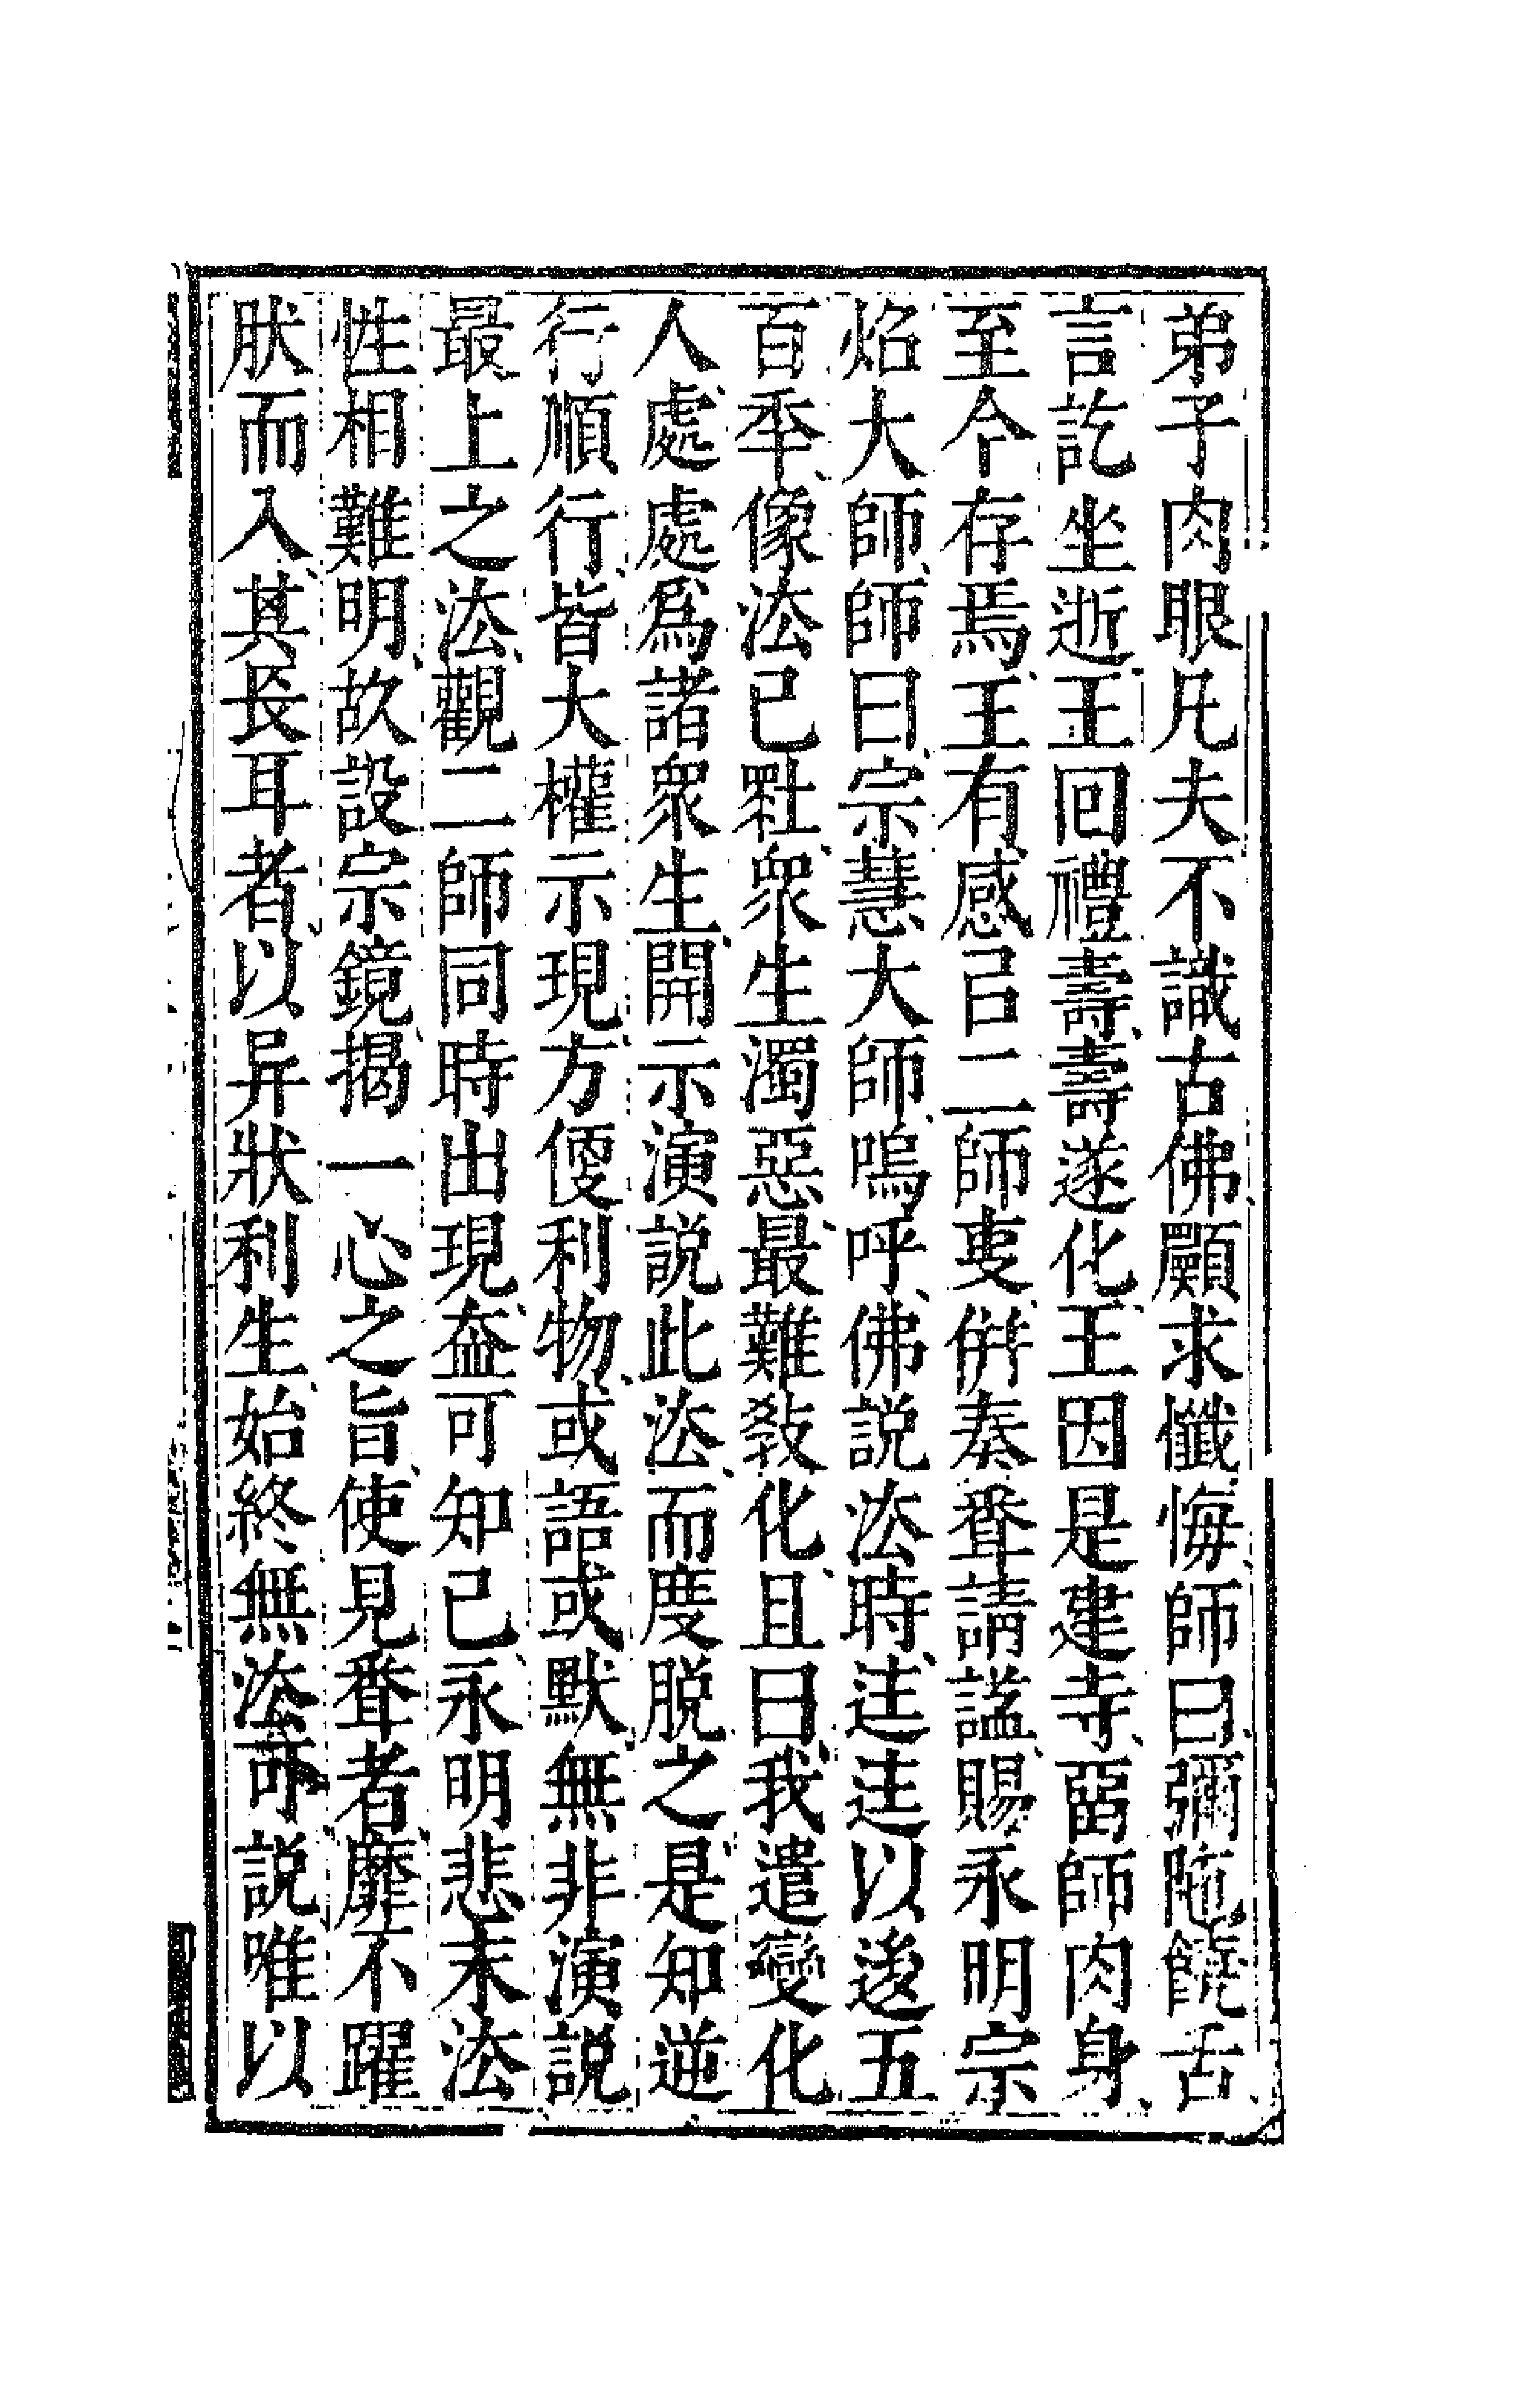 弟子肉眼凡夫不識古佛願求懺悔師曰彌陁饒舌
言訖坐逝王回禮壽壽遂化王因是建寺畱師肉身
至今存焉王有感㠯二師叓併奏聳請諡賜永明宗
焰大師師曰宗慧大師嗚呼佛說法時迬迬以後五
百秊像法已鞋衆生濁惡最難敎化且曰我遣變化
人處處爲諸衆生開示演說此法而度脫之是知逆
行順行皆大權示現方便利物或語或默無非演說
最上之法觀二師同時出現葢可知已永明悲末法
性相難明故設宗鏡揭一心之旨使見聳者靡不躍
肰而入其長耳者以异狀利生始終無法可說唯以